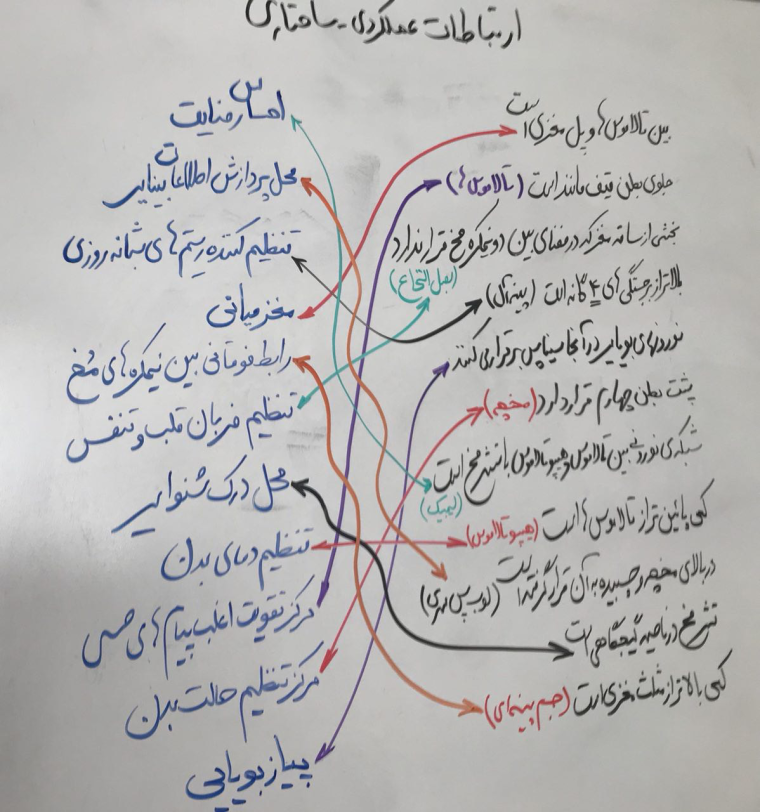 ارتباطات عملکردی - ساختاری
بین تالاموس‌ها و پل مغزی است
جلوی بطن قیف مانند است (تالاموس‌ها)
بخشی از ساقه مغز که در فضای بین دو نیمکره مخ قرار ندارد
(بصل النخاع)
بالاتر از برجستگی‌های ۴ گانه است (پینه آل)
نورون‌های بویایی در آنجا سیناپس برقرار می‌کنند
پشت بطن چهارم قرار دارد (مخچه)
شبکه‌ی نورونی بین تالاموس و هیپوتالاموس با قشر مخ است
(لیمبیک)
کمی پائین تر از تالاموس‌ها است (هیپوتالاموس)
در بالای مخچه و چسبیده به آن قرار گرفته است (لوب پس سری)
قشر مخ در ناحیه گیجگاهی است
کمی بالاتر از مثلث مغزی است (جسم پینه‌ای)
احساس رضایت
محل پردازش اطلاعات بینایی
تنظیم کننده ریتم‌های شبانه روزی
مغز میانی
رابط فوقانی بین نیمکره‌های مخ
تنظیم ضربان قلب و تنفس
محل درک شنوایی
تنظیم دمای بدن
مرکز تقویت اغلب پیام‌های حسی
مرکز تنظیم حالت بدن
پیاز بویایی